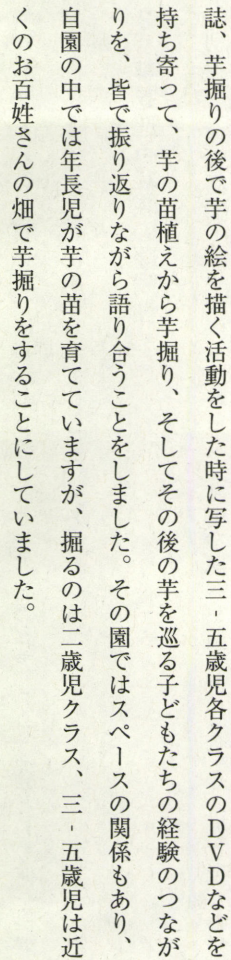 誌、芋掘りの後で芋の絵を描く活動をした時に写した三‐五歳児各クラスのDVDなどを
持ち寄って、芋の苗植えから芋掘り、そしてその後の芋を巡る子どもたちの経験のつなが
りを、皆で振り返りながら語り合うことをしました。その園ではスペースの関係もあり、
自園の中では年長児が芋の苗を育てていますが、掘るのは二歳児クラス、三‐五歳児は近
くのお百姓さんの畑で芋掘りをすることにしていました。